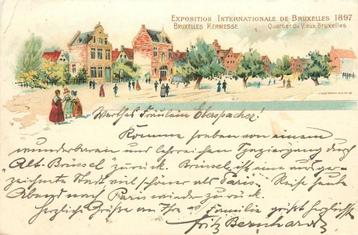 EXPOSITION INTERNATIONALE DE BRUXELLES 1897
BRUXELLES KERMESSE Quartier du Vieux Bruxelles
Werthes Fräulein
Komme soeben von einem
wunderbaren und lehrreichen Spaziergang durch
Alt-Brüssel zurück. Brüssel ist eine ausge-
zeichnete Stadt, viel schöner als Paris. Reise heute
Abend nach Paris wieder zurück.
Herzliche Grüße an Ihre Familie
Fritz Bernhardt